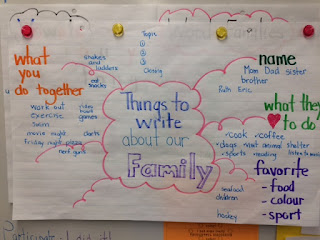 Topic
①
②
③
Closing
what
you
do together
snakes
and
ladders
eat
snacks
work out
exercise
Swim
movie night
Friday night pizza
nerf guns
video
games
darts
Things to
write
about our
Family
name
Mom Dad sister
brother
Ruth Eric
what they
to do
cook
coffee
dogs
visit animal shelter
sports
reading
listen to music
favorite
- food
- colour
- sport
seafood
children
hockey